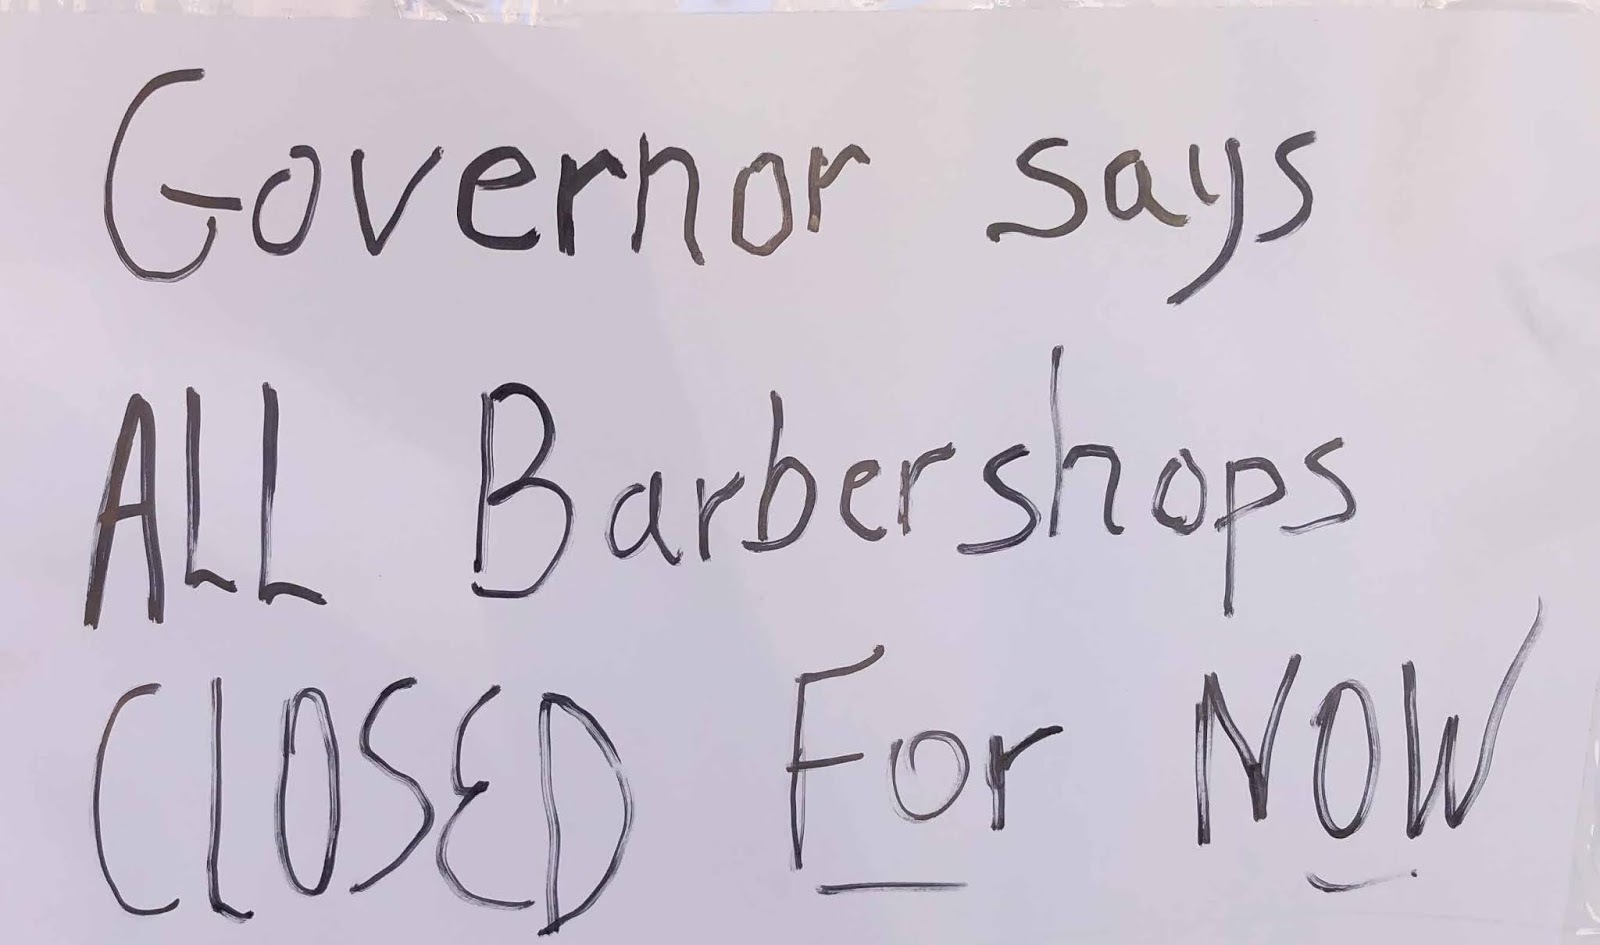 Governor says
ALL Barbershops
CLOSED For NOW